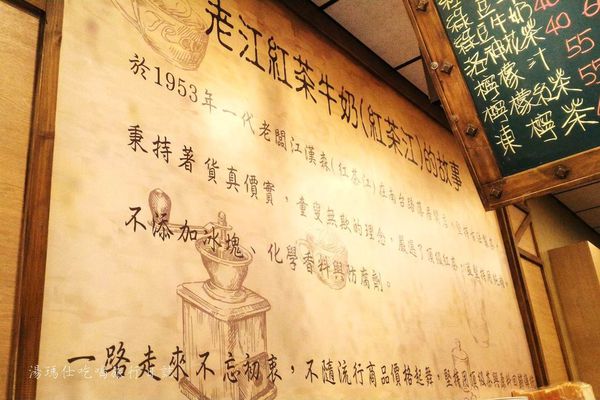 老江紅茶牛奶(紅茶江)的故事
於1953年一代老闆江漢森(紅茶江)在南台路
秉持著貨真價實，童叟無欺的理念，嚴選了頂級紅茶
不添加冰塊、化學香料與防腐劑。
一路走來不忘初衷，不隨流行商品價格起舞，堅持頂級茶
綠豆牛奶 40
洛神花茶 40
檸檬汁 55
檸檬綠茶 55
凍檸茶
湯瑪仕吃喝